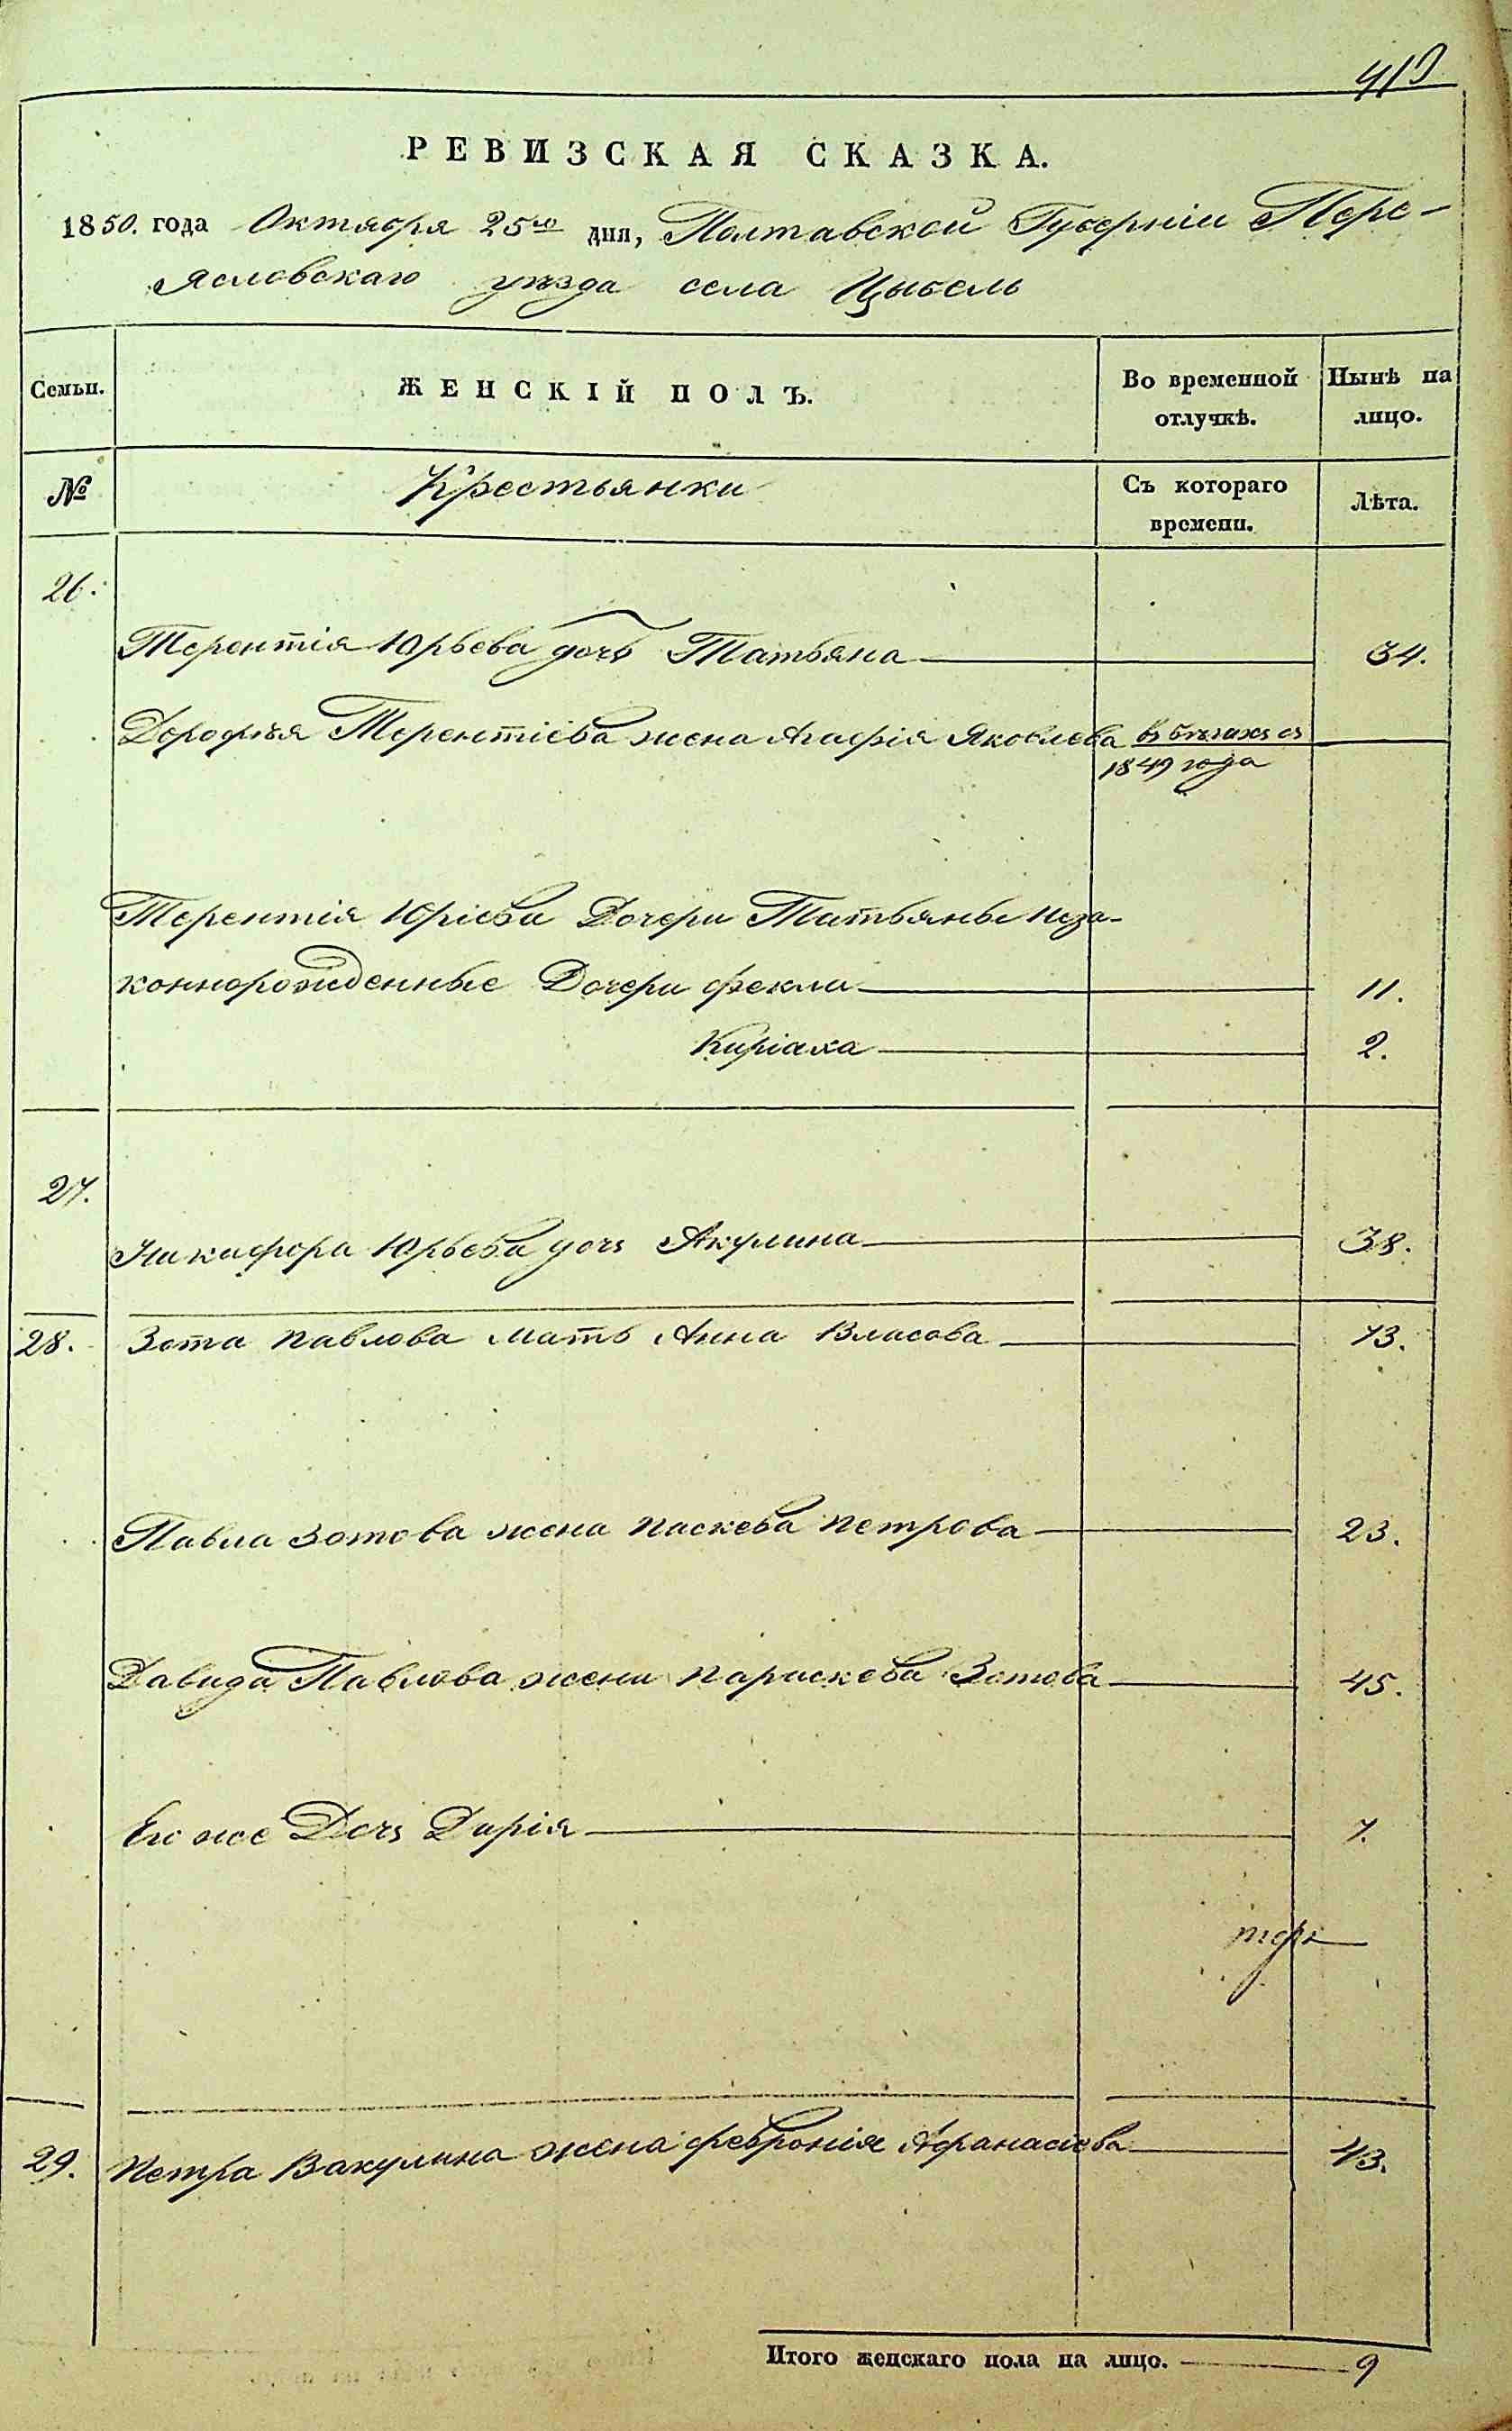 РЕВИЗСКАЯ СКАЗКА.
1850. года Октября 25го дня, Полтавской Губерніи Пере-
ясловскаго уѣзда села Цыбель
Семьи.
ЖЕНСКІЙ ПОЛЪ.
Во временной отлучкѣ.
Нынѣ на лицо.
№
Крестьянки
Съ котораго времени.
Лѣта.
26.
Терентія Юрьева дочь Татьяна 34.
Дорофѣя Терентіева жена Агафія Яковлева въ бѣгахъ съ
1849 года
Терентія Юріева Дочери Татьяны неза-
коннорожденные Дочери Фекла 11.
Киріаха 2.
27.
Никифора Юрьева дочь Акулина 38.
28. Зота Павлова мать Анна Власова 73.
Павла Зотова жена Паскева Петрова 23.
Давида Павлова жена Параскева Зотова 45.
Его же Дочь Дарія 7.
29. Петра Вакулина жена Февронія Афанасіева 43.
Итого женскаго пола на лицо. 9